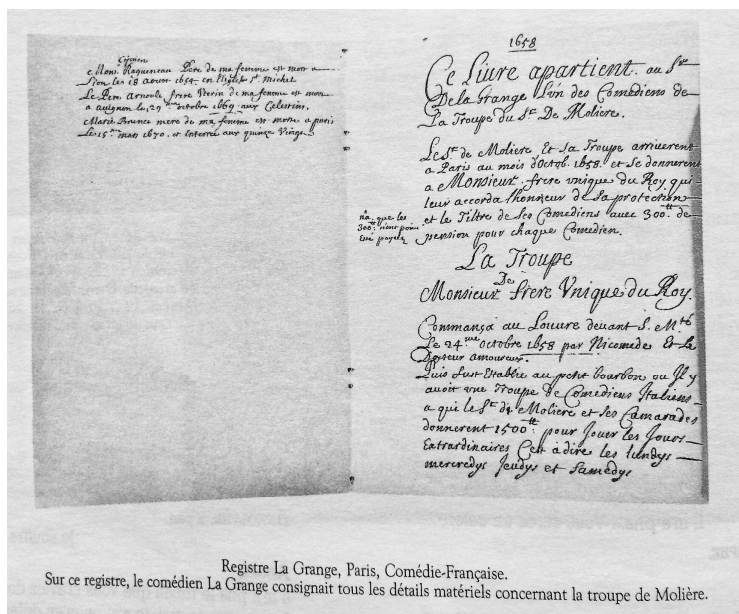 Cyprien
Mons. Ragueneau Pere de ma femme est mort a
Lion les 18 aoust 1654 en l'Eglise St. Michel
Le Pere Arnoulx frere Vterin de ma femme est mort
a auignon le 29me octobre 1669 aux Celestins.
Marie Brunet mere de ma femme est morte a paris
Le 15me mars 1670. et Enterrée aux quinze Vingts
1658
Ce Liure apartient au Sr
De la Grange L'vn des Comediens de
La Troupe du Sr. De Moliere.
Le Sr. de Moliere Et sa Troupe arriuerent
a Paris au mois d'Octob. 1658. et se donnerent
a Monsieur. frere vnique du Roy qui
leur accorda l'honneur de sa protection
et le Tiltre de ses Comediens auec 300tt. de
pension pour chaque Comedien.
na. que les
300tt n'ont point
esté payéz
La Troupe
De
Monsieur frere Vnique du Roy.
Commança au Louure deuant S. Mté
Le 24me Octobre 1658 par Nicomede Et le
Docteur amoureux.
Puis fust Establie au petit bourbon ou Il y
auoit vne Troupe de Comediens Italiens
a qui le Sr. de Moliere et ses Camarades
donnerent 1500tt. pour Jouer les Jours
Extraordinaires C'est à dire les lundys
mercredys Jeudys et Samedys
Registre La Grange, Paris, Comédie-Française.
Sur ce registre, le comédien La Grange consignait tous les détails matériels concernant la troupe de Molière.